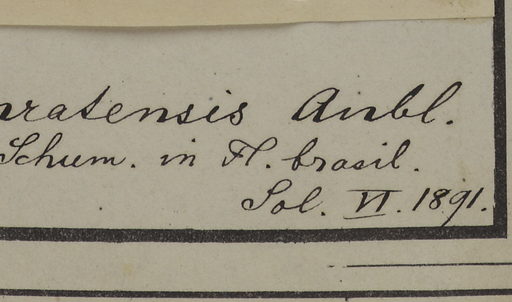 nratensis Aubl.
Schum. in Fl. brasil.
Sol. VI. 1891.